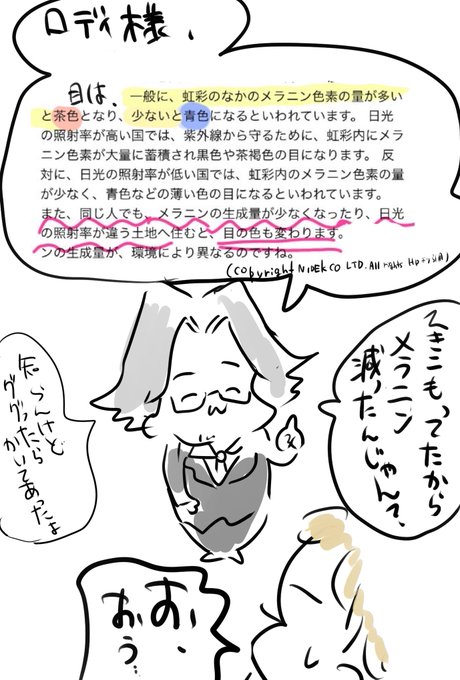 ロディ様、
目は、一般に、虹彩のなかのメラニン色素の量が多い
と茶色となり、少ないと青色になるといわれています。 日光
の照射率が高い国では、紫外線から守るために、虹彩内にメラ
ニン色素が大量に蓄積され黒色や茶褐色の目になります。 反
対に、日光の照射率が低い国では、虹彩内のメラニン色素の量
が少なく、青色などの薄い色の目になるといわれています。
また、同じ人でも、メラニンの生成量が少なくなったり、日光
の照射率が違う土地へ住むと、目の色も変わります。
ンの生成量が、環境により異なるのですね。
(copyright NIDEK CO LTD. All rights
もってたから
メラニン
減ったんじゃんて、
知らんけど
ググったら
かいてあったよ
お、
おぅ…